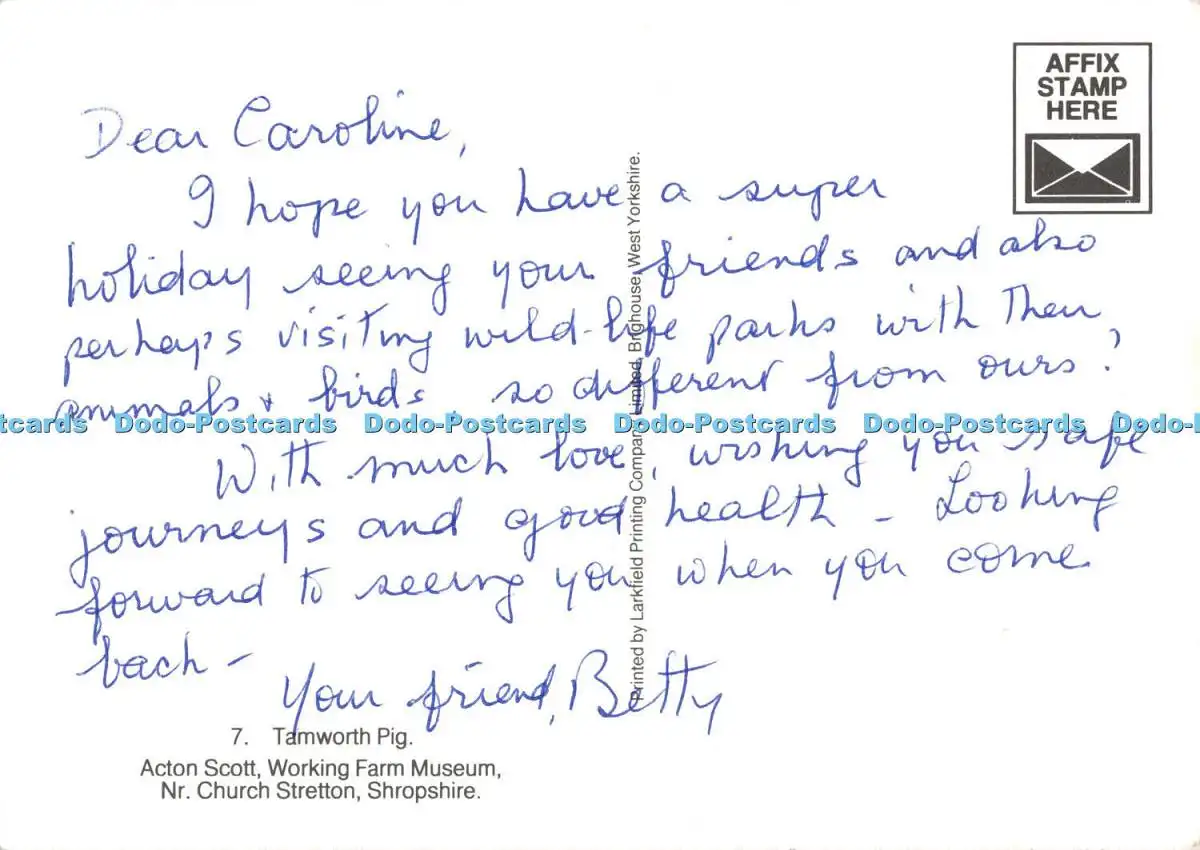 AFFIX
STAMP
HERE
Dear Caroline,
I hope you have a super
holiday seeing your friends and also
perhaps visiting wild-life parks with their
animals & birds, so different from ours!
With much love, wishing you safe
journeys and good health - Looking
forward to seeing you when you come
back -
Your friend, Betty
Printed by Larkfield Printing Company Limited, Brighouse, West Yorkshire.
7. Tamworth Pig.
Acton Scott, Working Farm Museum,
Nr. Church Stretton, Shropshire.
tcards Dodo-Postcards Dodo-Postcards Dodo-Postcards Dodo-Postcards Dodo-P